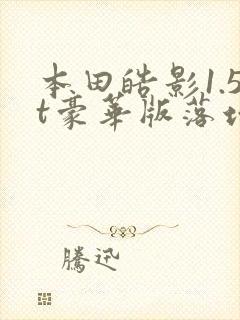 本田皓影1.5
t豪華版落
騰迅